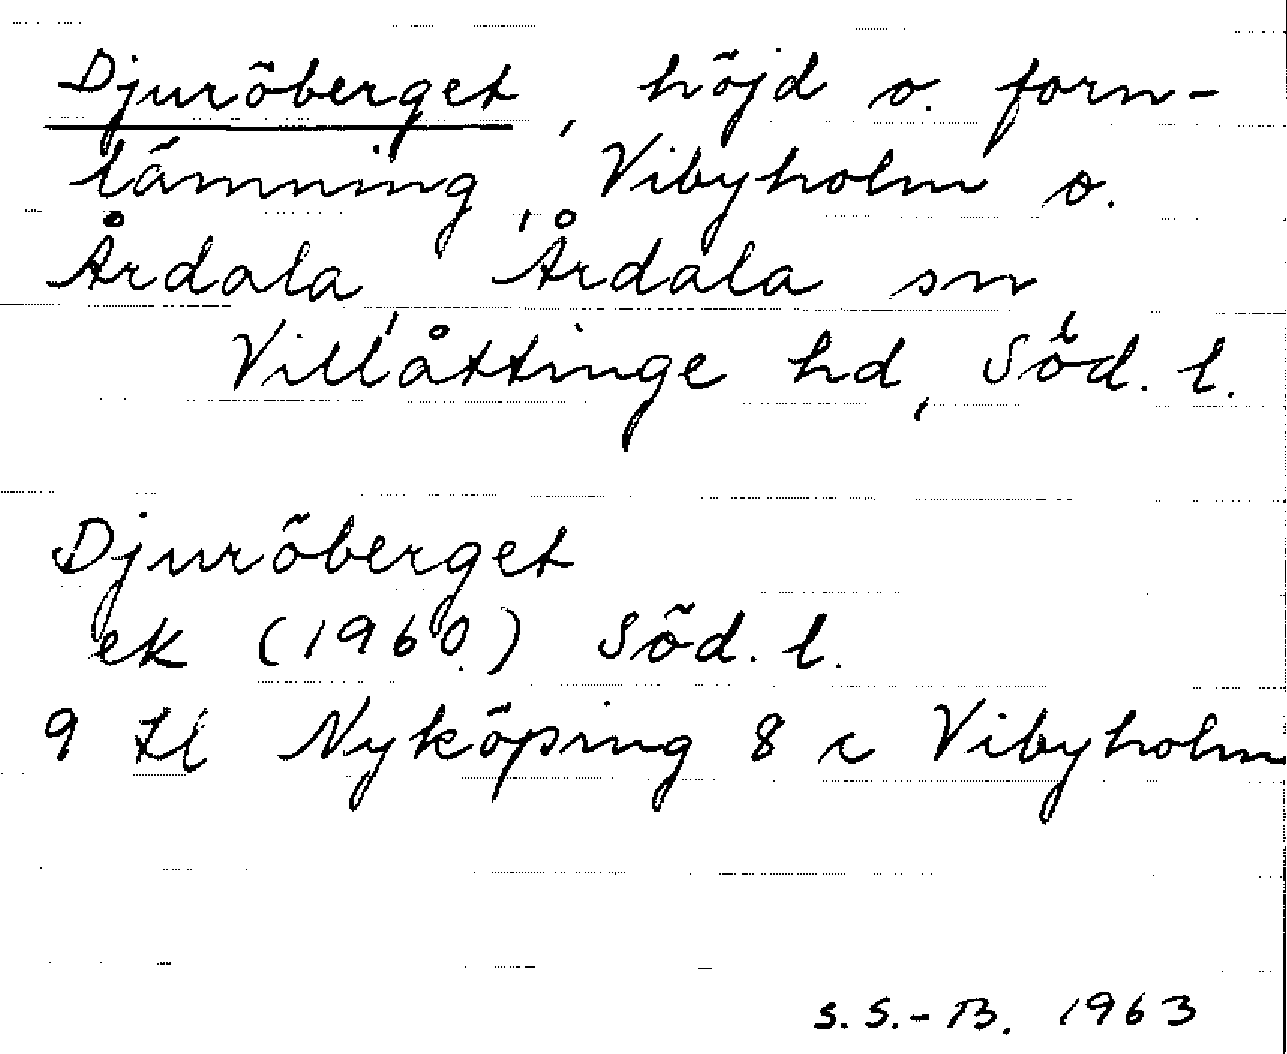 Djuröberget, höjd o. forn-
lämning, Vibyholm o.
Årdala, Årdala sn,
Villåttinge hd, Söd. l.
Djuröberget
ek (1960) Söd. l.
9 H Nyköping 8 c Vibyholm
S.S.-B. 1963